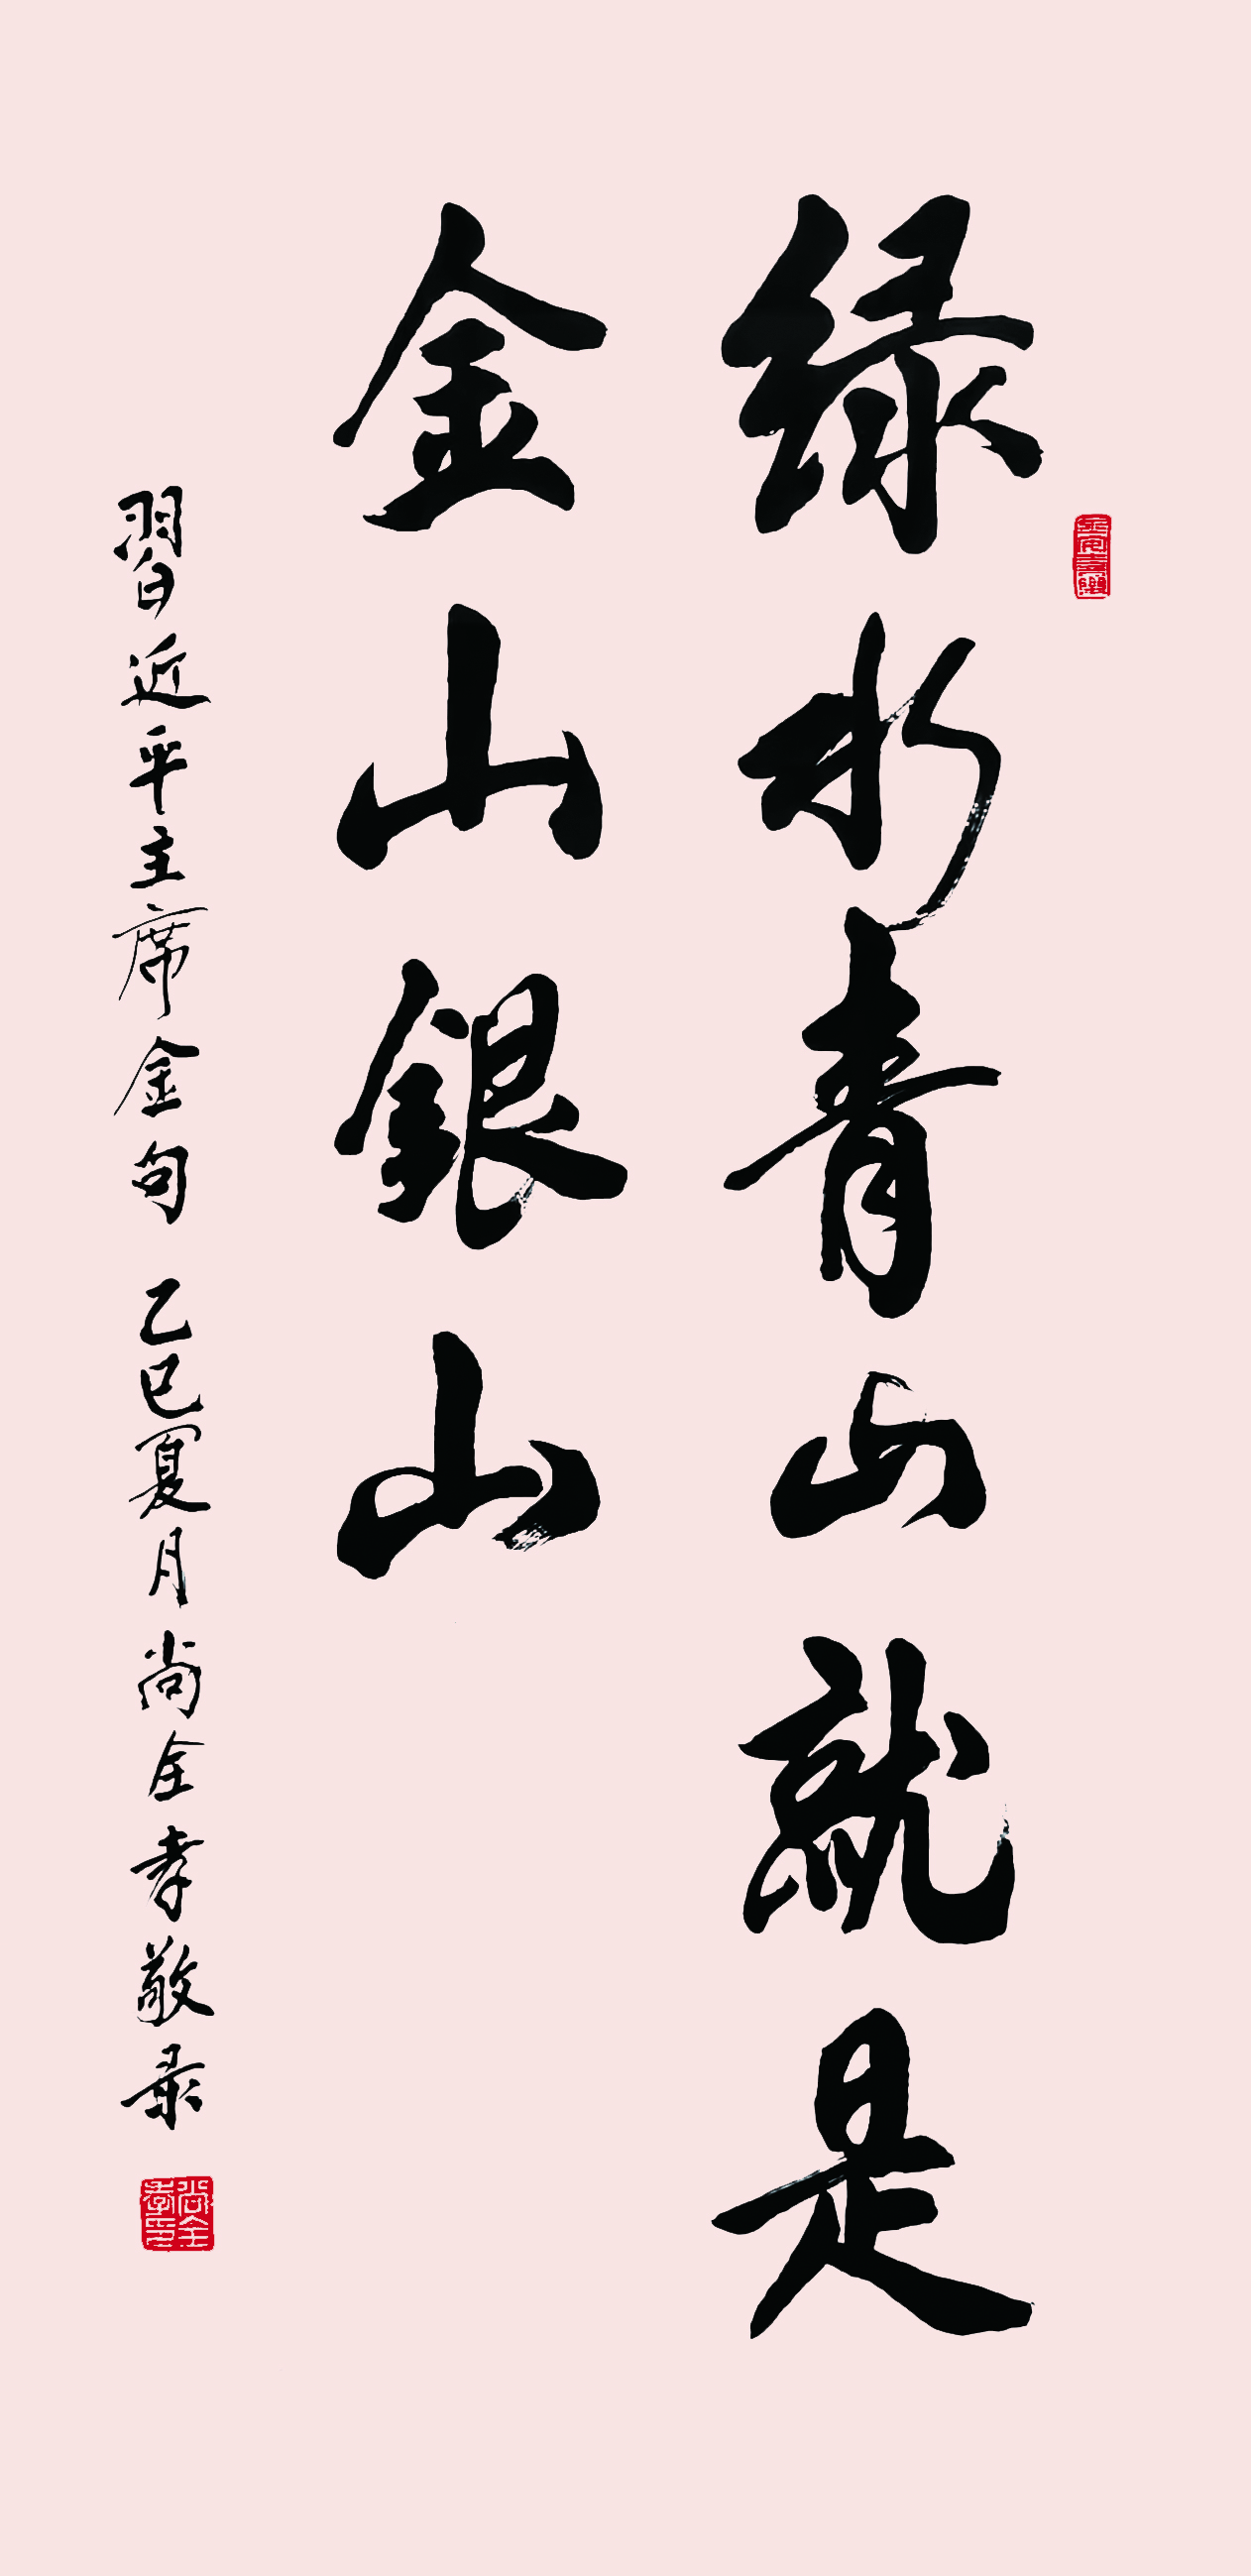 绿水青山就是
金山銀山
習近平主席金句 乙巳夏月尚全孝敬录
尚全孝印